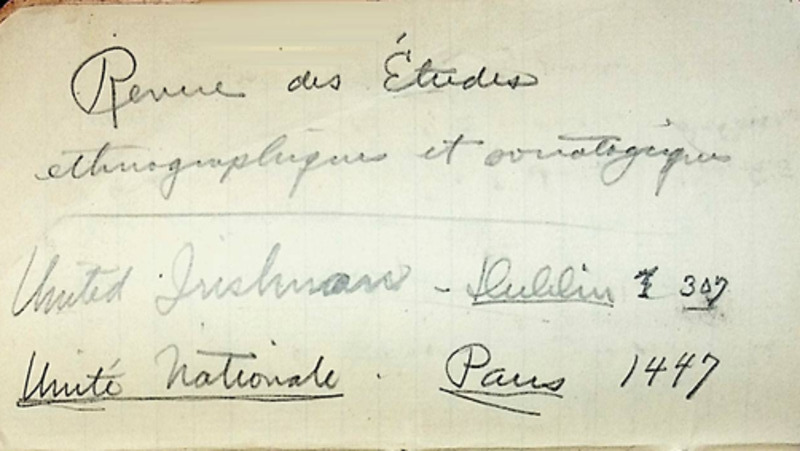 Revue des Études
ethnographiques et sociologiques
United Irishman - Dublin 307
Unité Nationale. Paris 1447